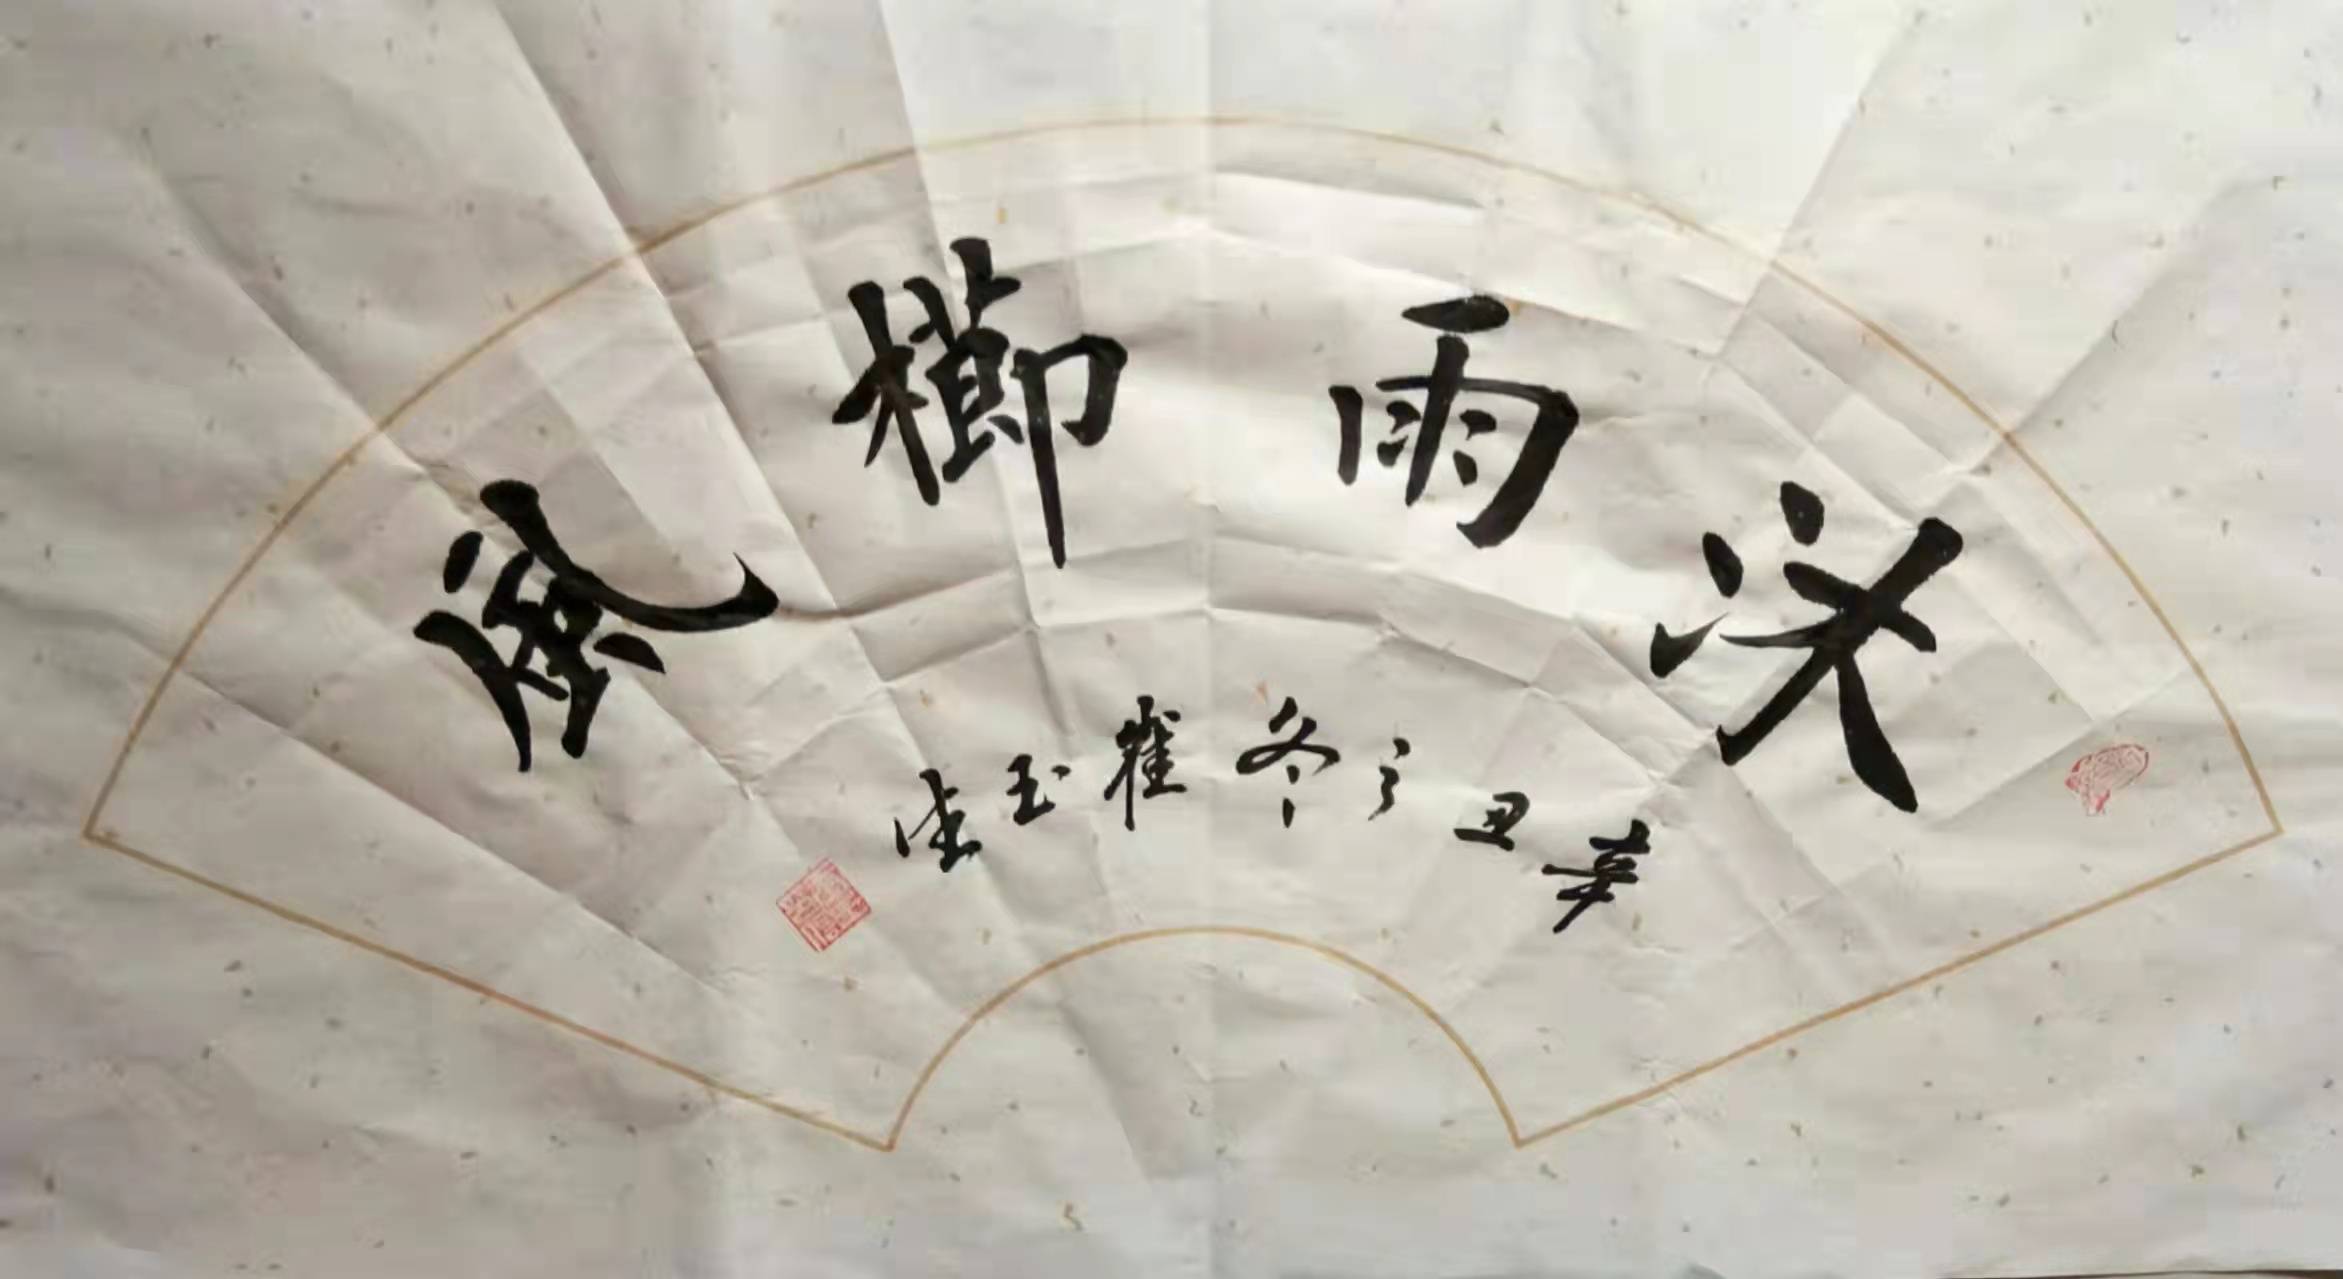 沐雨櫛風
辛丑之冬崔玉